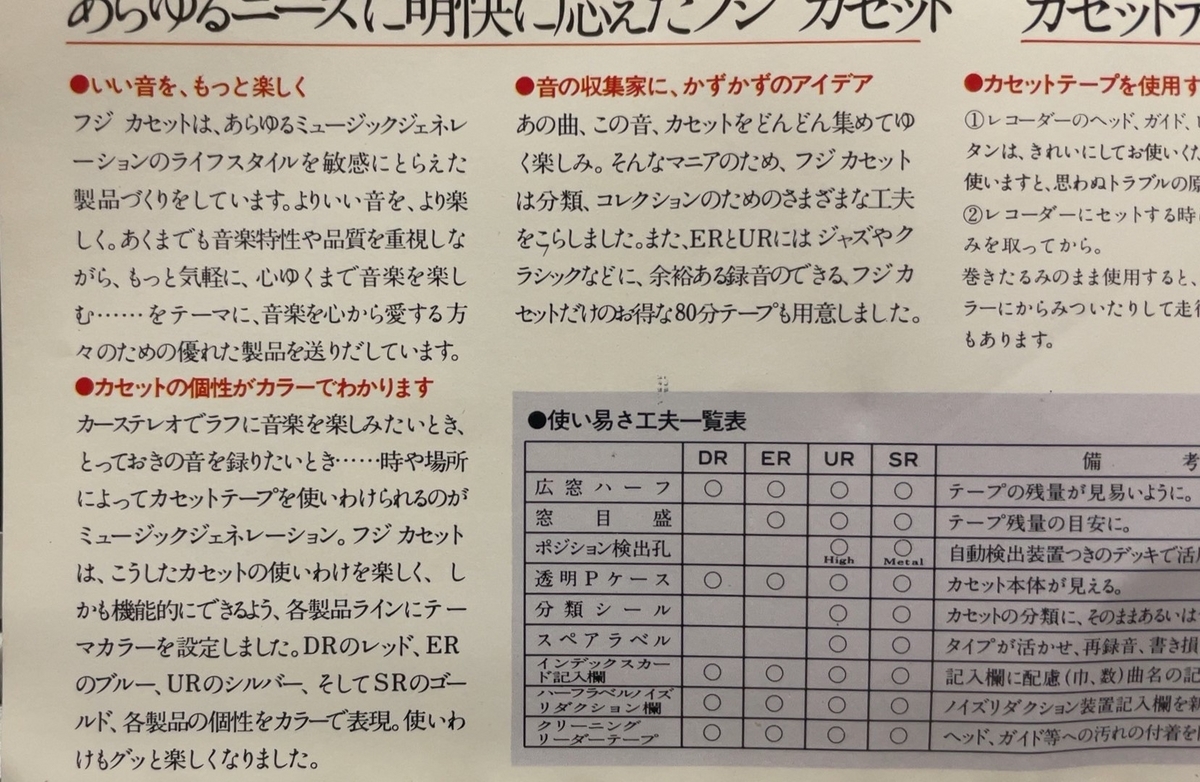 あらゆるニーズに明快に応えたフジ カセット
●いい音を、もっと楽しく
フジ カセットは、あらゆるミュージックジェネレ
ーションのライフスタイルを敏感にとらえた
製品づくりをしています。よりいい音を、より楽
しく。あくまでも音楽特性や品質を重視しな
がら、もっと気軽に、心ゆくまで音楽を楽し
む……をテーマに、音楽を心から愛する方
々のための優れた製品を送りだしています。
●カセットの個性がカラーでわかります
カーステレオでラフに音楽を楽しみたいとき、
とっておきの音を録りたいとき……時や場所
によってカセットテープを使いわけられるのが
ミュージックジェネレーション。フジ カセット
は、こうしたカセットの使いわけを楽しく、し
かも機能的にできるよう、各製品ラインにテー
マカラーを設定しました。DRのレッド、ER
のブルー、URのシルバー、そしてSRのゴー
ルド、各製品の個性をカラーで表現。使いわ
けもグッと楽しくなりました。
●音の収集家に、かずかずのアイデア
あの曲、この音、カセットをどんどん集めてゆ
く楽しみ。そんなマニアのため、フジ カセット
は分類、コレクションのためのさまざまな工夫
をこらしました。また、ERとURには ジャズやク
ラシックなどに、余裕ある録音のできる、フジカ
セットだけのお得な80分テープも用意しました。
カセットテ
●カセットテープを使用す
①レコーダーのヘッド、ガイド、
タンは、きれいにしてお使いくた
使いますと、思わぬトラブルの原
②レコーダーにセットする時
みを取ってから。
巻きたるみのまま使用すると、
ラーにからみついたりして走行
もあります。
●使い易さ工夫一覧表
DR ER UR SR 備 考
広窓ハーフ ○ ○ ○ ○ テープの残量が見易いように。
窓目盛 ○ ○ ○ テープ残量の目安に。
ポジション検出孔 ○ High ○ Metal 自動検出装置つきのデッキで活用
透明Pケース ○ ○ ○ ○ カセット本体が見える。
分類シール ○ ○ カセットの分類に、そのままあるいは
スペアラベル ○ ○ タイプが活かせ、再録音、書き損
インデックスカー
ド記入欄 ○ ○ ○ ○ 記入欄に配慮(巾、数)曲名の記
ハーフラベルノイズ
リダクション欄 ○ ○ ○ ○ ノイズリダクション装置記入欄を新
クリーニング
リーダーテープ ○ ○ ○ ○ ヘッド、ガイド等への汚れの付着を